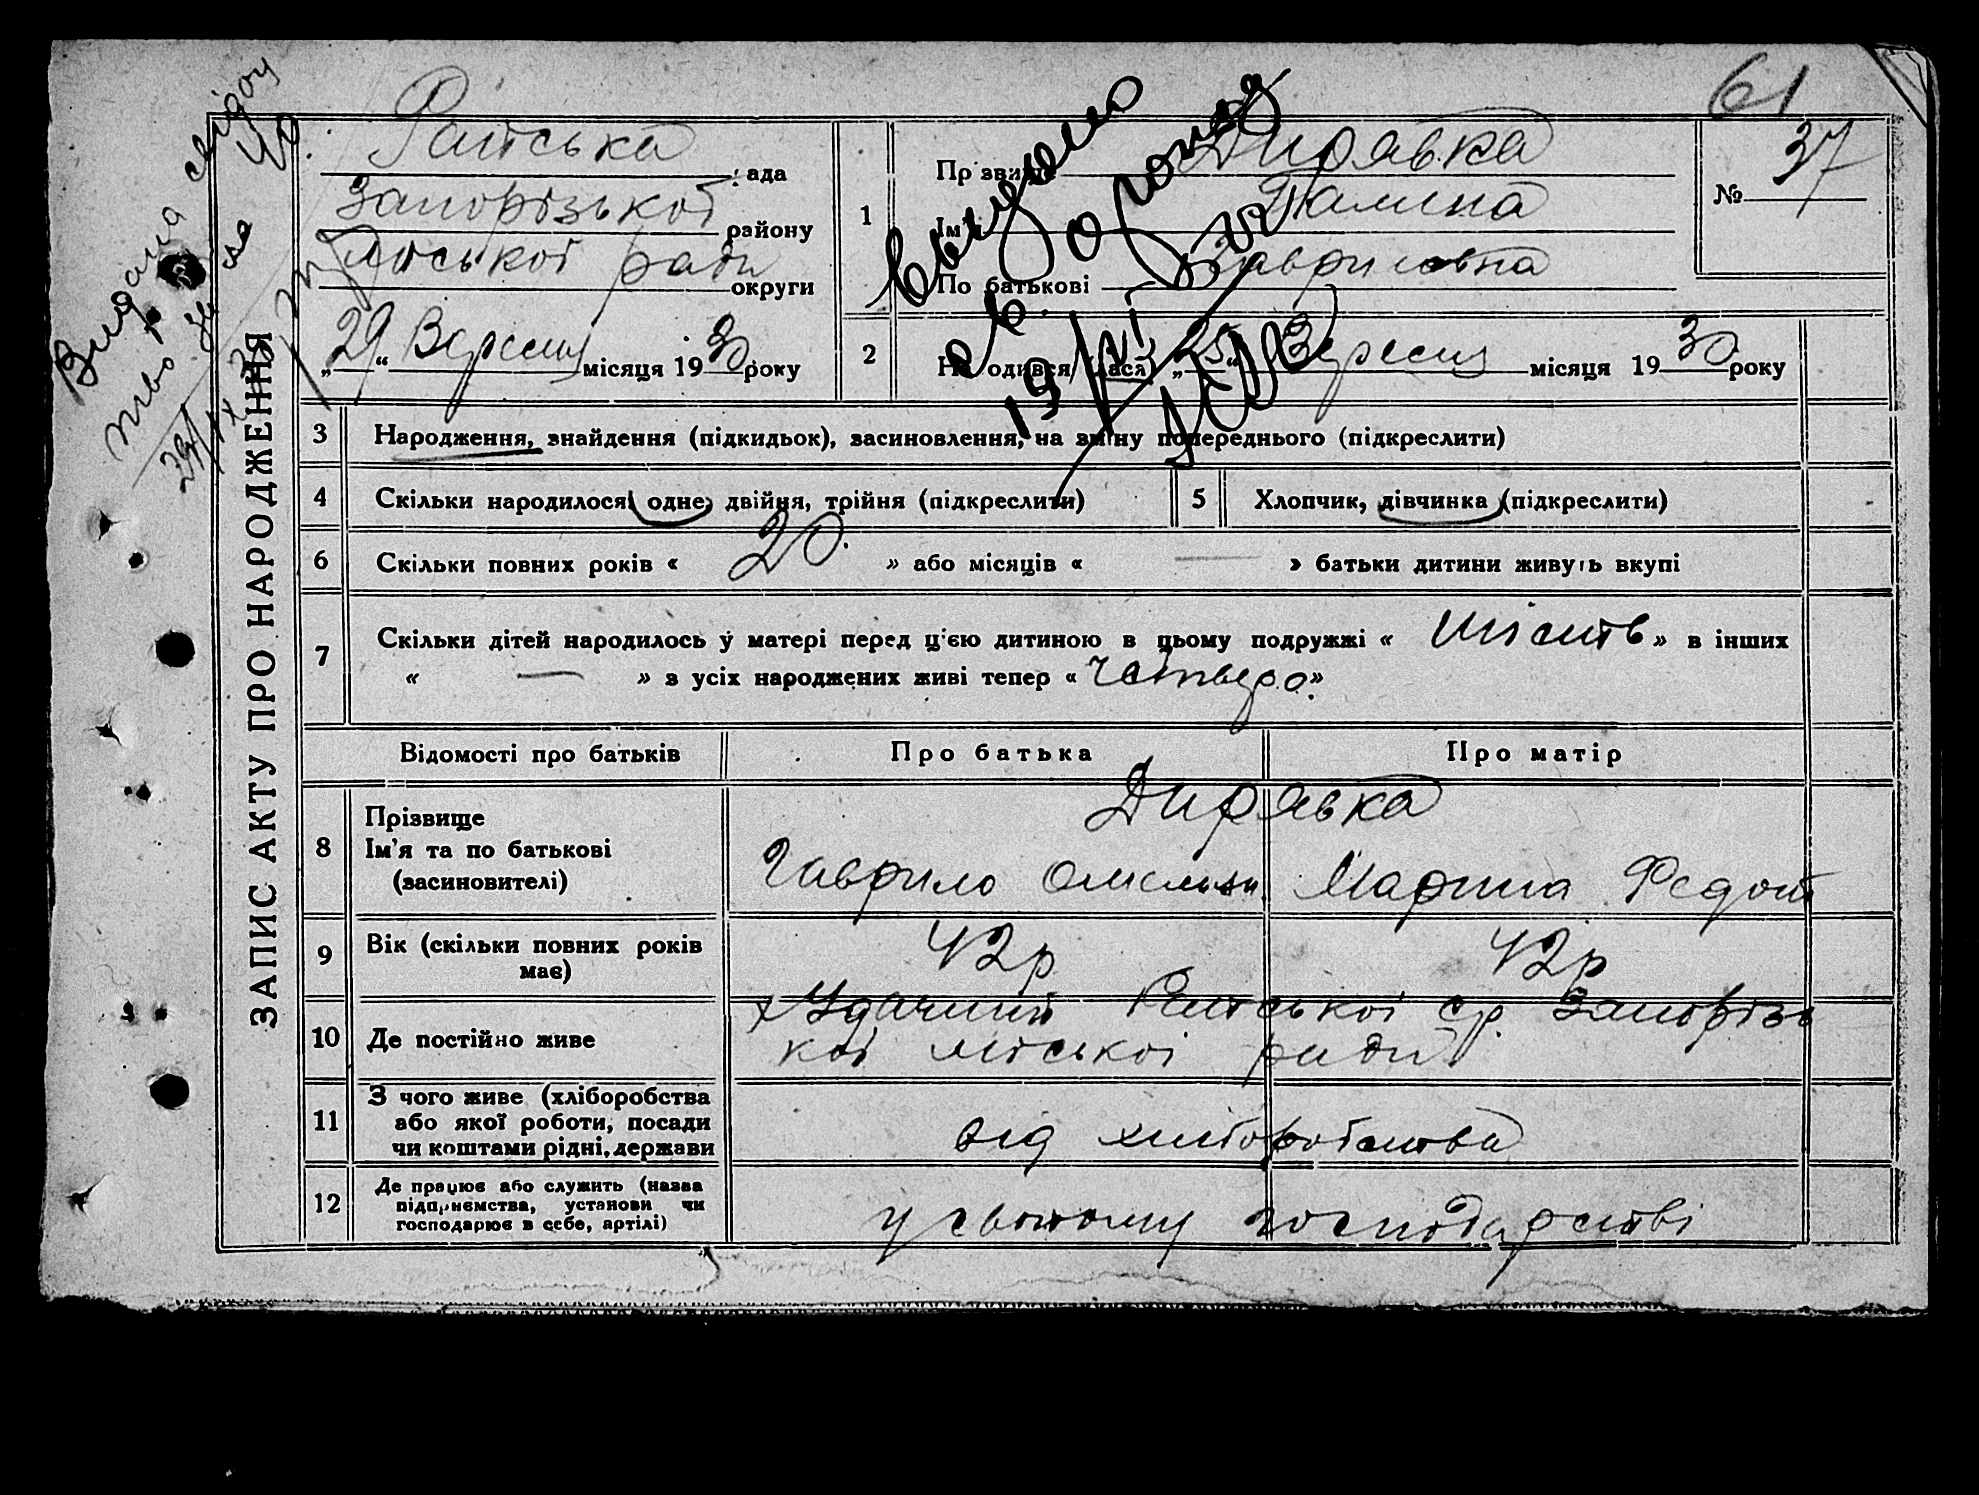 61
Раїська рада
Запорізької району
міської ради округи
„29“ Вересня місяця 1930 року
1
Прізвище Дирявка
Ім'я Галина
По батькові Гаврилівна
№ 37
2
Народився (лася) „25“ Вересня місяця 1930 року
ЗАПИС АКТУ ПРО НАРОДЖЕННЯ
3 Народження, знайдення (підкидьок), засиновлення, на зміну попереднього (підкреслити)
4 Скільки народилося: одне, двійня, трійня (підкреслити)
5 Хлопчик, дівчинка (підкреслити)
6 Скільки повних років « 20 » або місяців « — » батьки дитини живуть вкупі
7 Скільки дітей народилось у матері перед цією дитиною в цьому подружжі « шість » в інших
« — » з усіх народжених живі тепер « четверо »
Відомості про батьків Про батька Про матір
8 Прізвище
Ім'я та по батькові
(засиновителі)
Дирявка
Гаврило Омелян. Марина Федот
9 Вік (скільки повних років
має)
42р 42р
10 Де постійно живе
х Удачний Раїської с.р. Запорізь
кої міської ради
11 З чого живе (хліборобства
або якої роботи, посади
чи коштами рідні, держави
від хліборобства
12 Де працює або служить (назва
підприємства, установи чи
господарює в себе, артілі)
у своєму господарстві